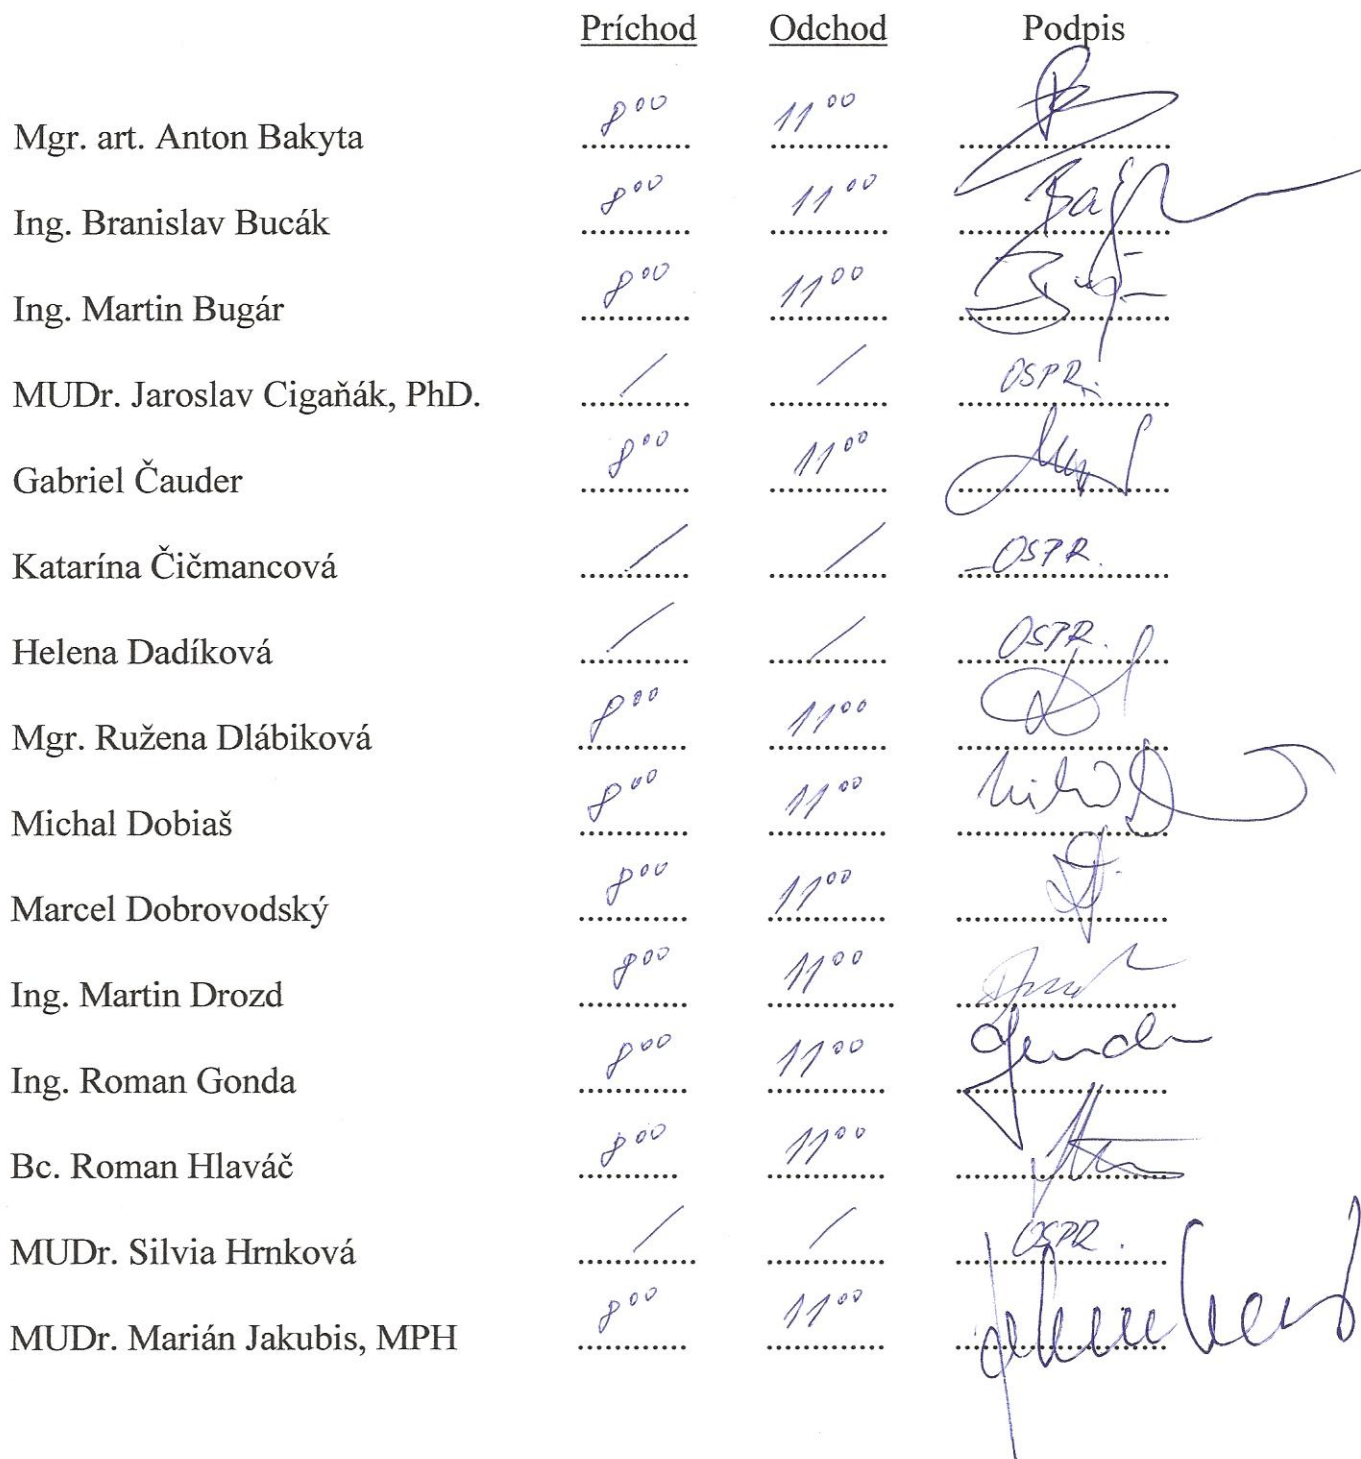 Príchod Odchod Podpis
Mgr. art. Anton Bakyta 8⁰⁰ 11⁰⁰
Ing. Branislav Bucák 8⁰⁰ 11⁰⁰
Ing. Martin Bugár 8⁰⁰ 11⁰⁰
MUDr. Jaroslav Cigaňák, PhD. / / OSPR.
Gabriel Čauder 8⁰⁰ 11⁰⁰
Katarína Čičmancová / / OSPR.
Helena Dadíková / / OSPR.
Mgr. Ružena Dlábiková 8⁰⁰ 11⁰⁰
Michal Dobiaš 8⁰⁰ 11⁰⁰
Marcel Dobrovodský 8⁰⁰ 11⁰⁰
Ing. Martin Drozd 8⁰⁰ 11⁰⁰
Ing. Roman Gonda 8⁰⁰ 11⁰⁰
Bc. Roman Hlaváč 8⁰⁰ 11⁰⁰
MUDr. Silvia Hrnková / / OSPR.
MUDr. Marián Jakubis, MPH 8⁰⁰ 11⁰⁰